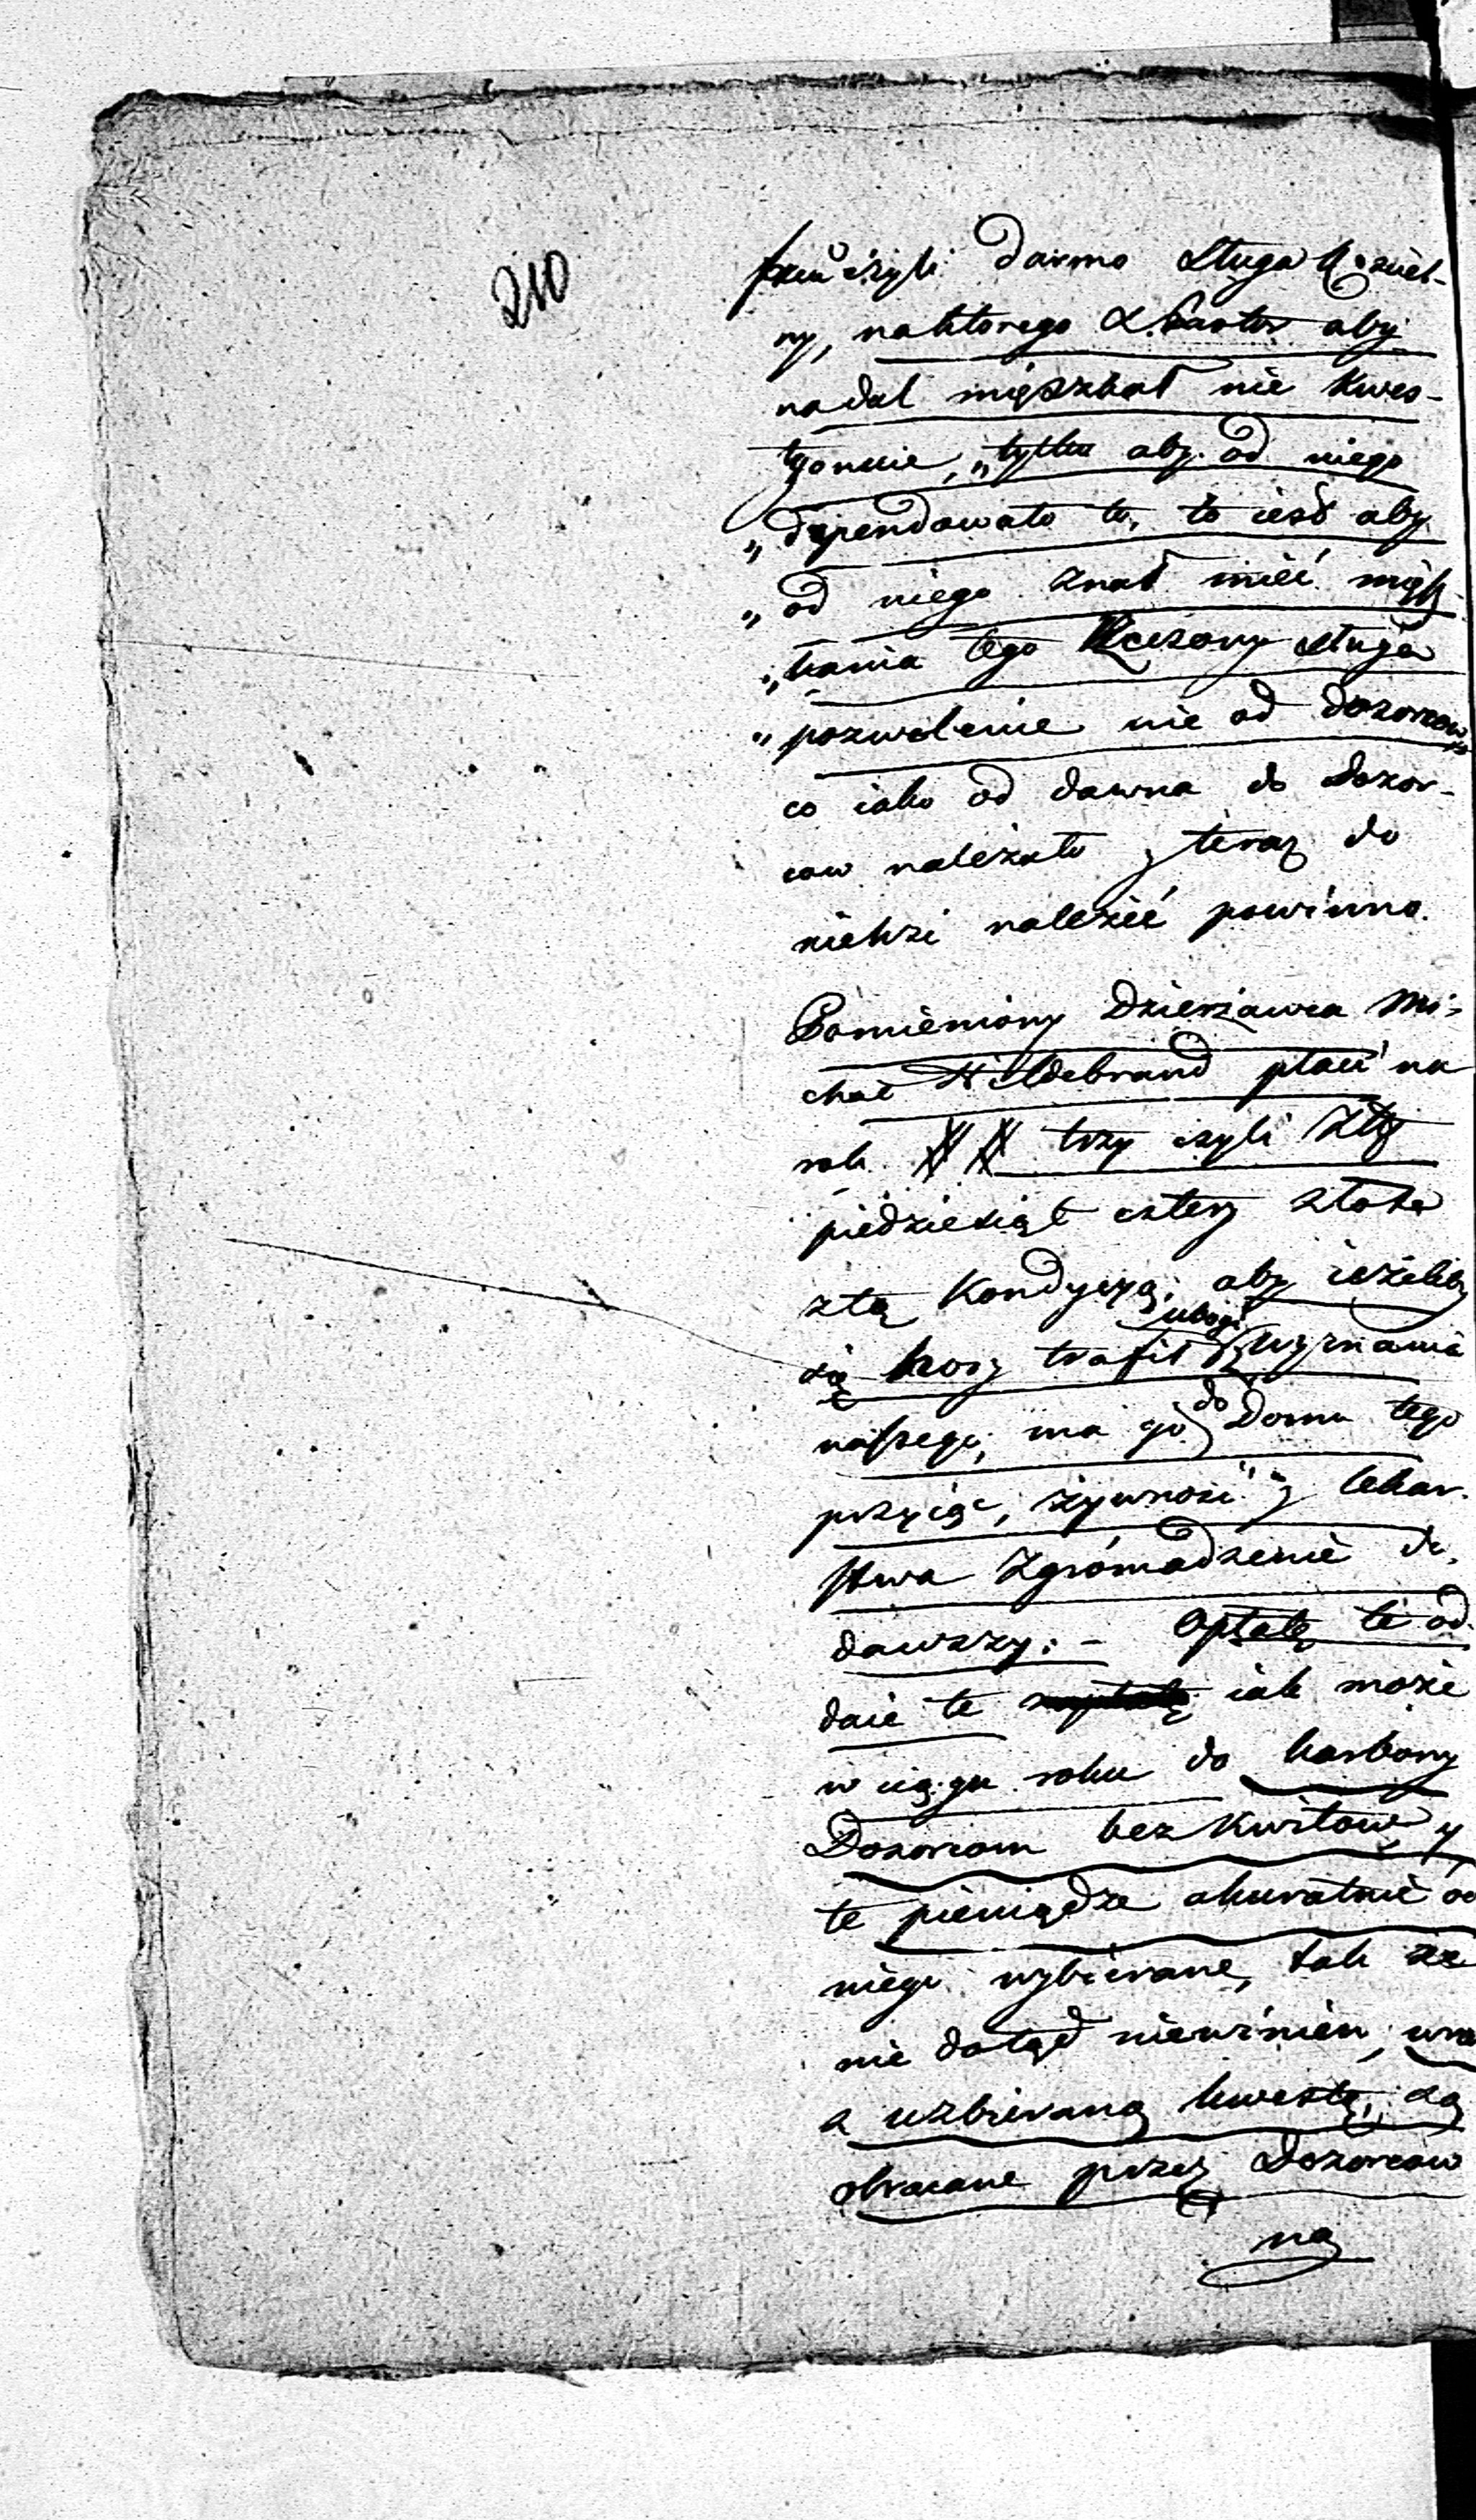 210
czyli darmo Sługa Koszciel-
ny, naktorego X. Pastor aby
nadal mięszkał nie kwes-
tyonuie, „tylko aby od niego
„dependowało to, to iest aby
„od niego znał mieć mięsz-
„kania tego Rzeczony sługa
„pozwolenie nie od dozorcow„
co iako od dawna do Dozor-
cow należało y teraz do
nichzi należeć powinno.
Pomieniony Dzierżawca Mi-
chał Hildebrand płaci na
rok ## trzy czyli Złł
piędziesiąt cztery złote
ztą Kondycyą; aby ieżeliby
się chory trafił ubogi wyznania
naszego, ma go do Domu tego
przyiąc, żywność y lekar-
stwa Zgromadzenie do-
dawszy. - Opłatę tę od-
daie te iak może
w ciągu roku do karbony
Dozorcom bez kwitow y
te pieniądze akuratnie od
niego wybierane, tak że
nic dotąd niewinien,
z uzbieraną kwestą, są
obracane przez Dozorcow
na